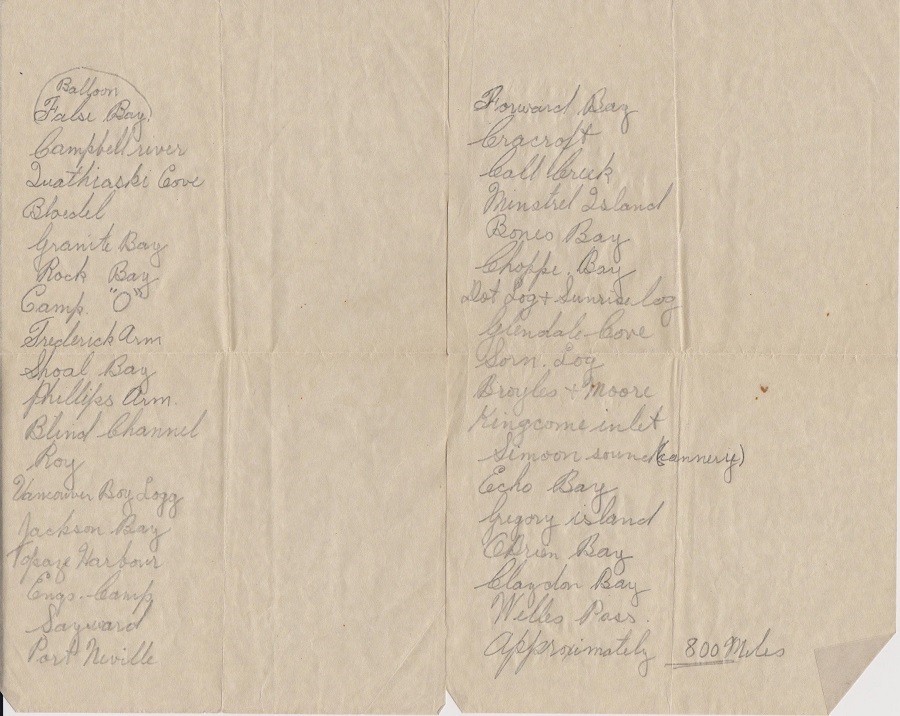 Balloon
False Bay.
Campbell river
Quathiaski Cove
Bloedel
Granite Bay
Rock Bay
Camp. "O"
Frederick Arm
Shoal Bay
Phillips Arm.
Blind Channel
Roy
Vancouver Bay Logg
Jackson Bay
Topaze Harbour
Engs. Camp
Sayward
Port Neville
Forward Bay
Cracroft
Call Creek
Minstrel Island
Bones Bay
Choppe. Bay
Dot Log + Sunrise log
Glendale Cove
Sorn. Log
Broyles + Moore
Kingcome inlet
Simoon sound (cannery)
Echo Bay
Gregory island
OBrien Bay
Claydon Bay
Welles Pass.
Approximately 800 Miles